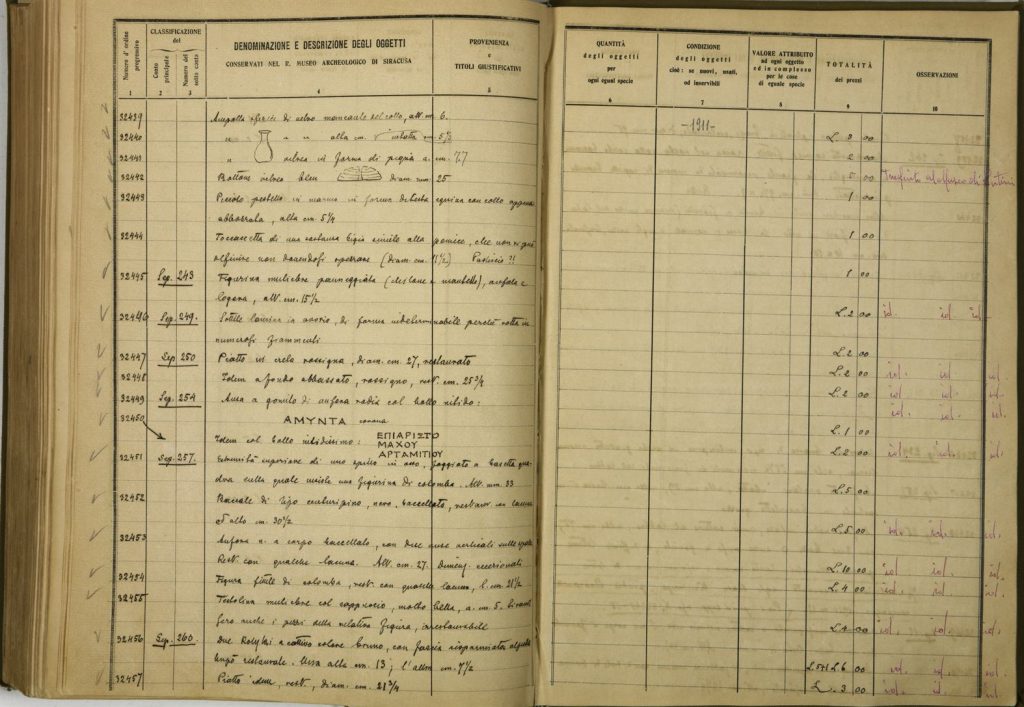 Numero d' ordine progressivo
CLASSIFICAZIONE
del
Conto principale
Numero del sotto conto
DENOMINAZIONE E DESCRIZIONE DEGLI OGGETTI
CONSERVATI NEL R. MUSEO ARCHEOLOGICO DI SIRACUSA
PROVENIENZA
e
TITOLI GIUSTIFICATIVI
1 2 3 4 5
32439 Ampolla sferica di vetro mancante del collo, alt. m. 6.
32440 " " " alta cm. 5½
32441 " vitrea in forma di pigna a. cm. 7.7
32442 Bottone vitreo bleu diam. mm. 25
32443 Piccolo pestello in marmo in forma di testa equina con collo appena
abbozzato, alta cm. 5¼
32444 di una sostanza bigia simile alla pomice, che non si può
definire non dovendosi spezzare (diam. cm. 11½) Pasticcio ?!
32445 Sep. 243 Figurina muliebre panneggiata (chitone e mantello), acefala e
logora, alt. cm. 15½
32446 Sep. 249. Sottile in avorio, di forma indeterminabile perchè rotta in
numerosi frammenti
32447 Sep 250 Piatto in creta rossigna, diam. cm. 27, restaurato
32448 Idem a fondo abbassato, rossigno, rest. cm. 25¾
32449 Sep. 254 Ansa a gomito di anfora rodia col bollo nitido:
ΑΜΥΝΤΑ corona
32450 Idem col bollo nitidissimo: ΕΠΙΑΡΙΣΤΟ
ΜΑΧΟΥ
ΑΡΤΑΜΙΤΙΟΥ
32451 Sep. 257. Estremità superiore di uno spillo in osso, foggiato a basetta qua-
dra sulla quale una figurina di colomba. Alt. mm 33
32452 Boccale di tipo centuripino, nero, baccellato, restaur. con lacune
alto cm. 30½
32453 Anfora n. a corpo baccellato, con due anse verticali sulle spalle
Rest. con qualche lacuna. Alt. cm. 27. Dimens. eccezionali
32454 Figura fittile di colomba, rest. con qualche lacuna, l. cm. 21½
32455 Testolina muliebre col cappuccio, molto bella, a. cm. 5.
anche i pezzi della relativa figura, irrestaurabile
32456 Sep. 260. Due Kotylai a cattivo colore bruno, con fascia risparmiata
restaurate. Una alta cm. 13; l'altra cm. 7½
32457 Piatto idem, rest., diam. cm. 21¾
QUANTITÀ
degli oggetti
per
ogni eguai specie
CONDIZIONE
degli oggetti
cioè: se nuovi, usati,
od inservibili
VALORE ATTRIBUITO
ad ogni oggetto
ed in complesso
per le cose
di eguale specie
TOTALITÀ
dei prezzi
OSSERVAZIONI
6 7 8 9 10
-1911-
L. 3 00
2 00
5 00
1 00
1 00
1 00
L. 2 00 id. id. id.
L. 2 00
L. 2 00 id. id. id.
L. 2 00 id. id. id.
id. id. id.
L. 1 00
L. 2 00 id. id.
L. 5 00
L. 5 00 id. id. id.
L. 10 00 id. id. id.
L. 4 00 id. id. id.
L. 4 00 id. id. id.
L. 6 00 id. id. id.
L. 3 00 id. id. id.